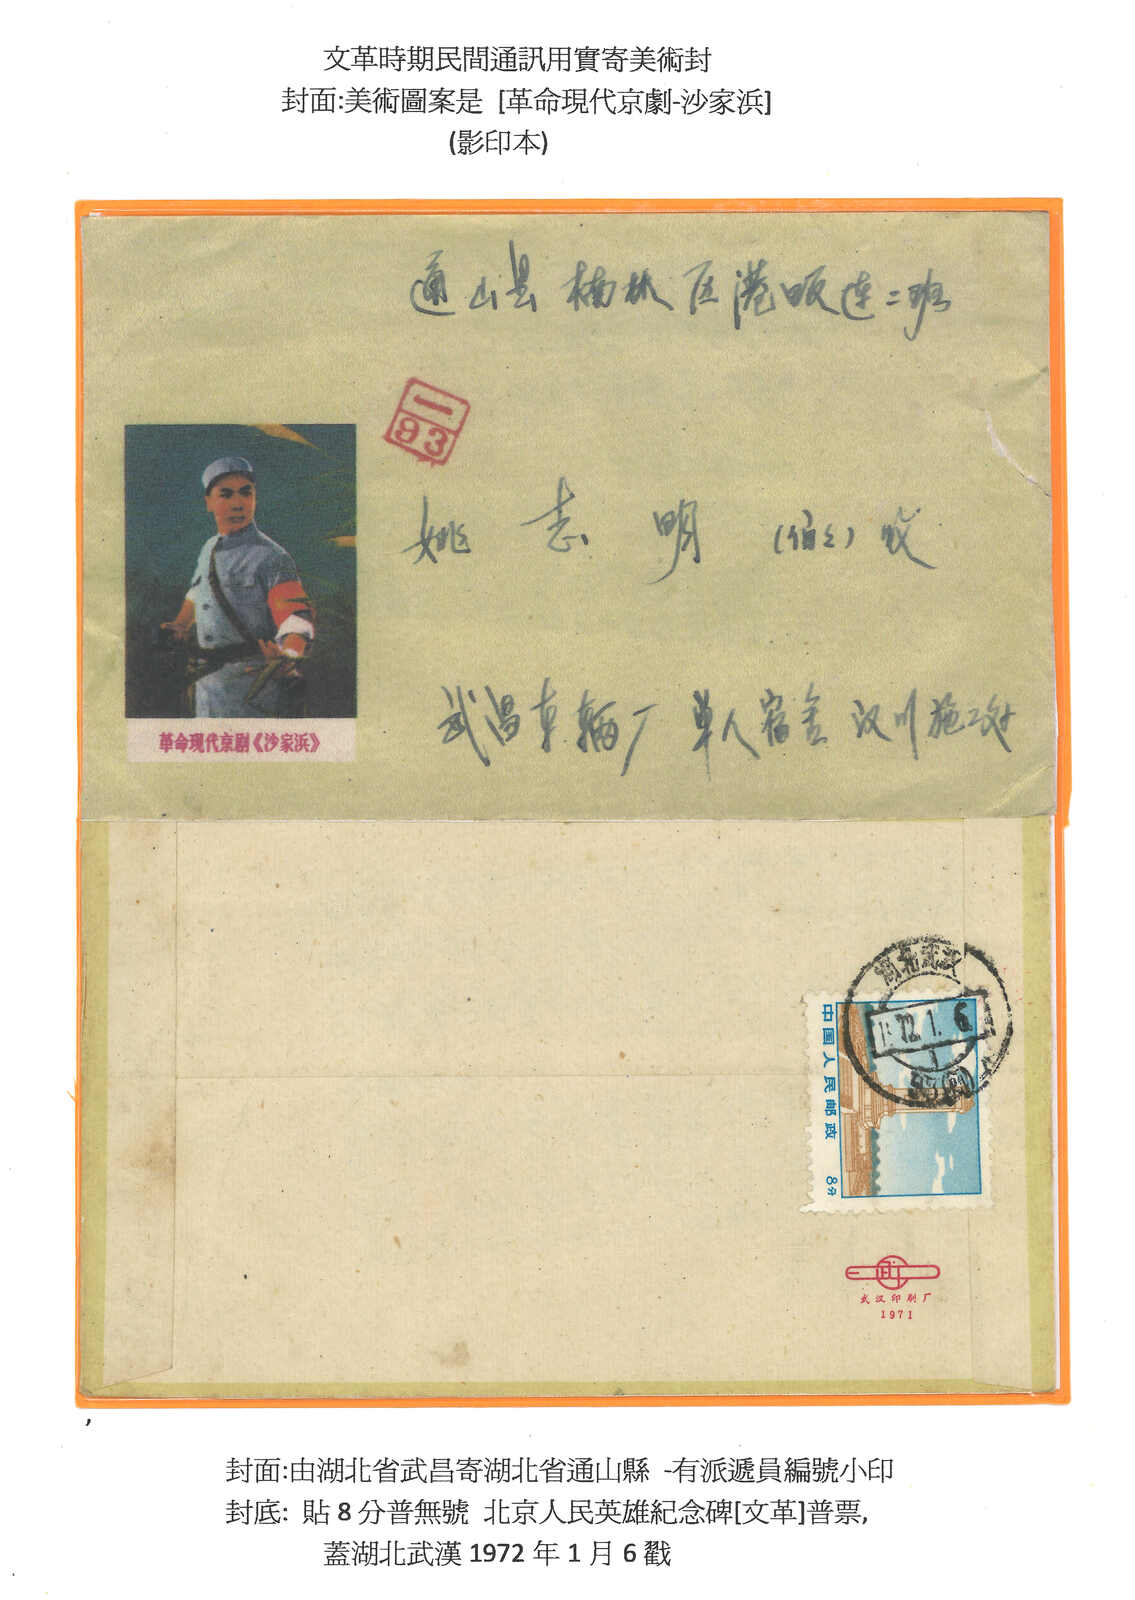 文革時期民間通訊用實寄美術封
封面:美術圖案是 [革命現代京劇-沙家浜]
(影印本)
通山县楠林区港畈连二班
一
93
姚志明(伯伯)收
武昌车辆厂单人宿舍汉川施工队
革命现代京剧《沙家浜》
湖北武汉
72.1.6
中国人民邮政
8分
武汉印刷厂
1971
,
封面:由湖北省武昌寄湖北省通山縣 -有派遞員編號小印
封底: 貼 8 分普無號 北京人民英雄紀念碑[文革]普票,
蓋湖北武漢 1972 年 1 月 6 戳